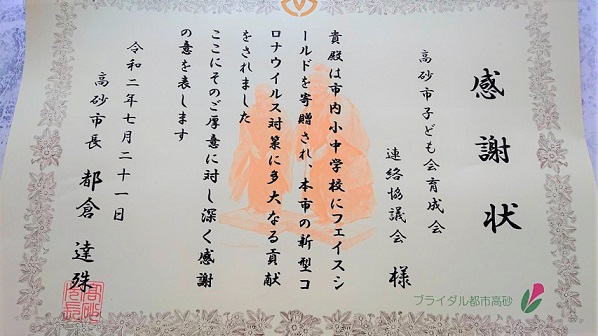 感謝状
高砂市子ども会育成会
連絡協議会 様
貴殿は市内小中学校にフェイスシ
ールドを寄贈され、本市の新型コ
ロナウイルス対策に多大なる貢献
をされました
ここにそのご厚意に対し深く感謝
の意を表します
令和二年七月二十一日
高砂市長 都倉 達殊
ブライダル都市高砂